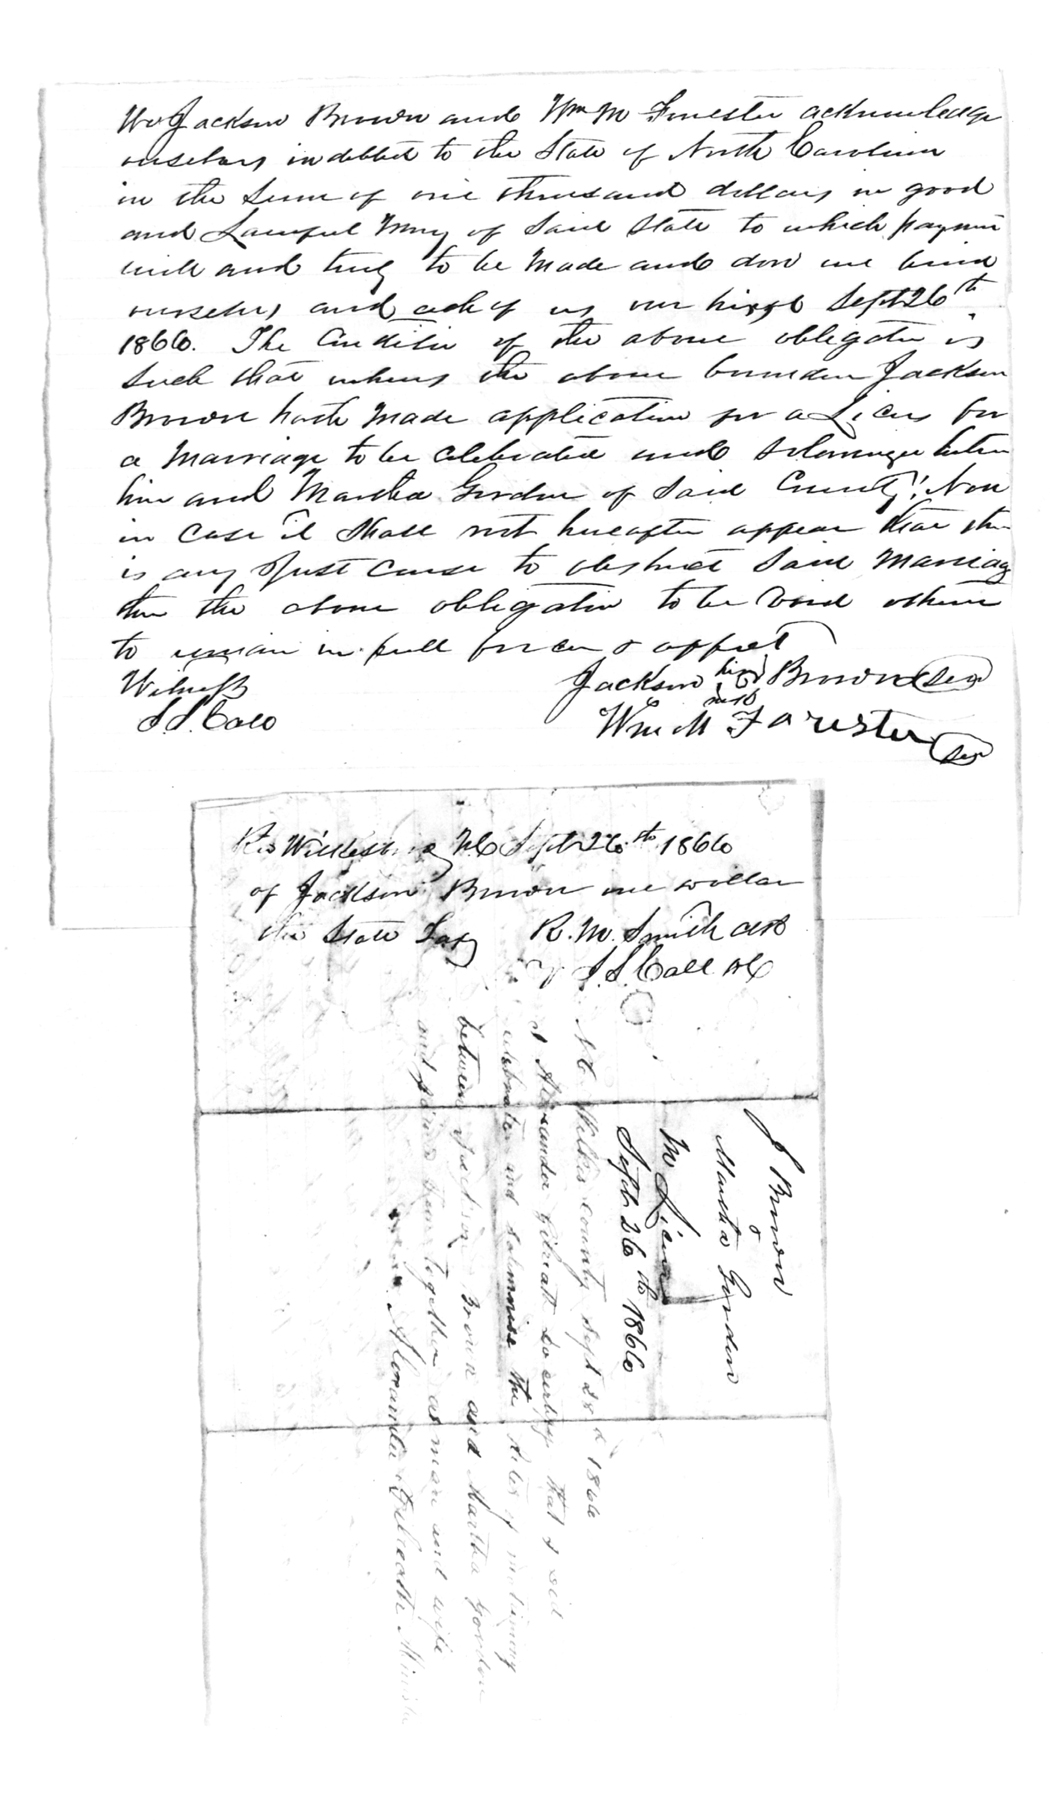 We Jackson Brown and Wm M Forester acknowledge
ourselves indebted to the State of North Carolina
in the Sum of one thousand dollars in good
and Lawful Mny of Said State to which paymn
will and truly to be Made and don we bind
ourselvs and each of us our hirs &c Sept 26th
1866. The Condition of the above obligation is
Such that whereas the above bounden Jackson
Brown hath Made application for a Licens for
a Marriage to be celebrated and Solemnized betwn
him and Martha Gordon of Said County; Now
in Case it Shall not hereafter appear that ther
is any Just cause to obstruct Said Marriag
then the above obligation to be Void otherwise
to remain in full force & effect
Witness
S. S. Call
Jackson his X mark Brown Seal
Wm M Forester Seal
Rcd Wilkesboro NC Sept 26th 1866
of Jackson Brown one dollar
the State Tax R. M. Smith
by S. S. Call DC
J Brown
&
Martha Gordon
M Licens
Sept 26th 1866
N C Wilkes county Sept 28th 1866
I Alexander Gilreath do certify that I did
celebrate and solomnise the rites of matrimony
between Jackson Brown and Martha Gordon
and joind them together as man and wife
Alexander Gilreath Minister